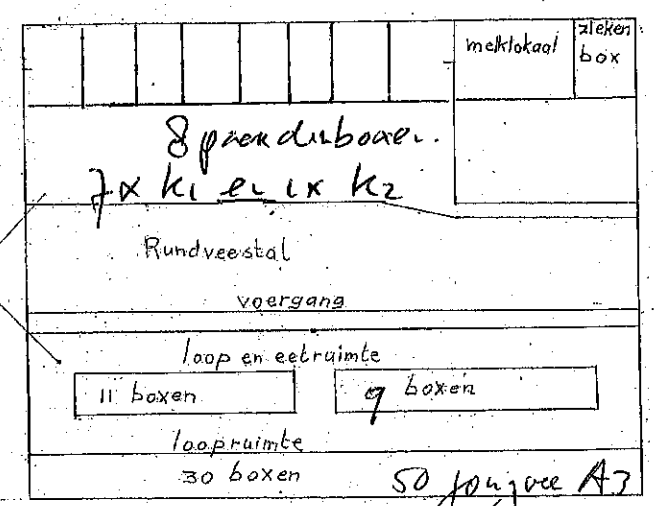 melklokaal
zieken
box
8 paardenboxen.
7x K1 en 1x K2
Rundveestal
voergang
loop en eetruimte
11 boxen
9 boxen
loopruimte
30 boxen
50 jongvee A3